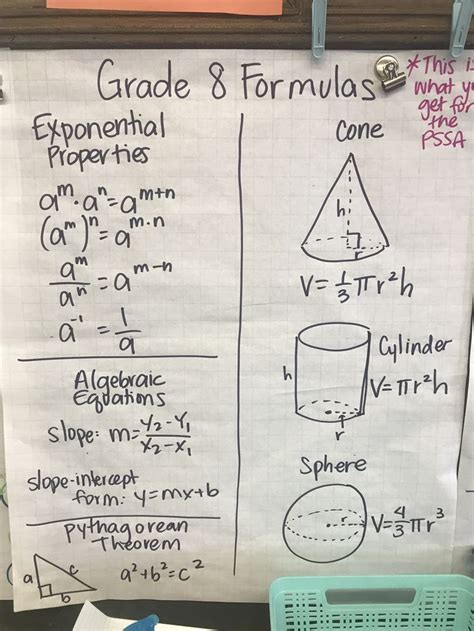 Grade 8 Formulas
*This is
what you
get for
the
PSSA
Exponential
Properties
aᵐ·aⁿ=aᵐ⁺ⁿ
(aᵐ)ⁿ=aᵐ·ⁿ
aᵐ/aⁿ=aᵐ⁻ⁿ
a⁻¹=1/a
Algebraic
Equations
slope: m=Y₂-Y₁/X₂-X₁
slope-intercept
form: y=mx+b
Pythagorean
Theorem
a
c
b
a²+b²=c²
Cone
h
r
V=1/3πr²h
Cylinder
h
V=πr²h
r
Sphere
r
V=4/3πr³